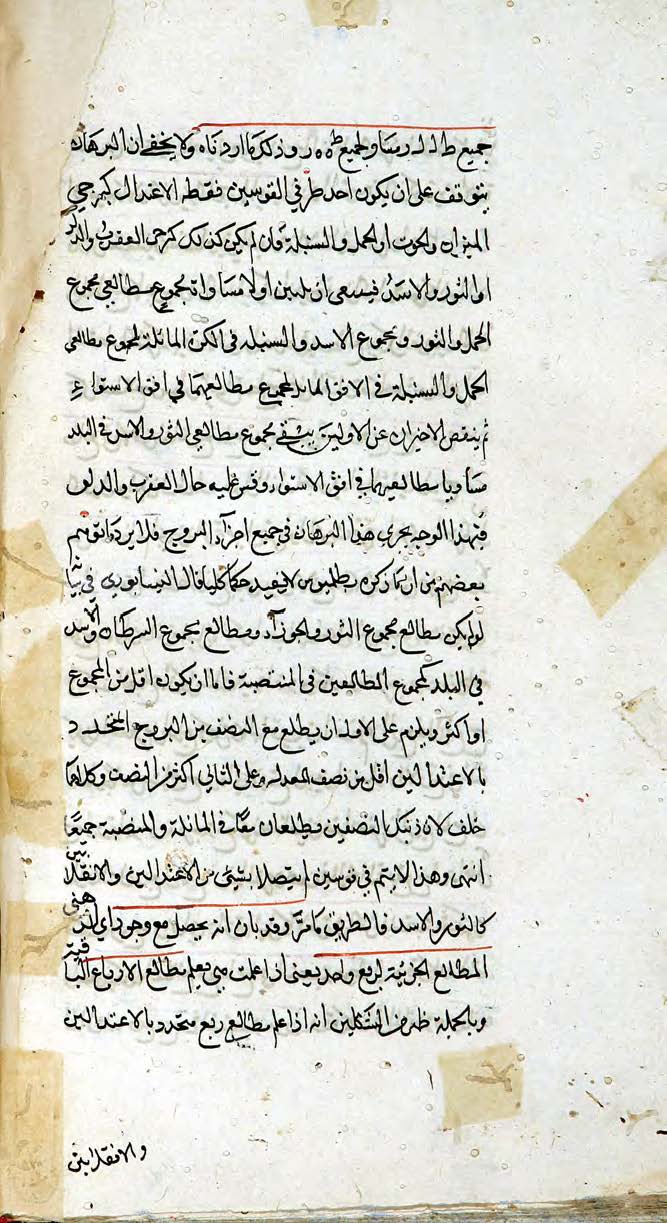 جميع ط ل ل ر مساو لجميع ط ه ه ر وذلك ما اردناه ولا يخفى ان البرهان
يتوقف على ان يكون احد طرفي القوسين نقطة الاعتدال كبرجي
الميزان والحوت او الحمل والسنبلة فان لم يكن كذلك كبرجي العقرب والدلو
او الثور والاسد فينبغي ان يبين اولا مساواة مجموع مطالعي مجموع
الحمل والثور ومجموع الاسد والسنبلة في الكرة المائلة لمجموع مطالعي
الحمل والسنبلة في الافق المائل لمجموع مطالعهما في افق الاستواء
ثم ينقص الاخيران عن الاولين يبقى مجموع مطالعي الثور والاسد في البلد
مساويا لمطالعهما في افق الاستواء وقس عليه حال العقرب والدلو
فبهذا الوجه يجري هذا البرهان في جميع اجزاء البروج فلا يرد ما توهم
بعضهم من ان ما ذكره بطلميوس لا يفيد حكما كليا قال النيسابوري في
لو لم يكن مطالع مجموع الثور والجوزاء ومطالع مجموع السرطان والاسد
في البلد كمجموع المطالعين في المنتصبة فاما ان يكون اقل من المجموع
او اكثر ويلزم على الاول ان يطلع مع النصف من البروج المحدد
بالاعتدالين اقل من نصف المعدل وعلى الثاني اكثر من النصف وكلاهما
خلف لان ذينك النصفين يطلعان معا في المائلة والمنتصبة جميعا
انتهى وهذا لا يتم في قوسين لم يتصلا بشئ من الاعتدالين والانقلابين
كالثور والاسد فالطريق ما مر وقد بان انه يحصل مع وجود
المطالع الجزئية لربع واحد يعني اذا علمت مبي يعلم مطالع الارباع الباقية
وبالجملة ظهر من الشكلين انه اذا علم مطالع ربع متحدد بالاعتدالين
والانقلابين